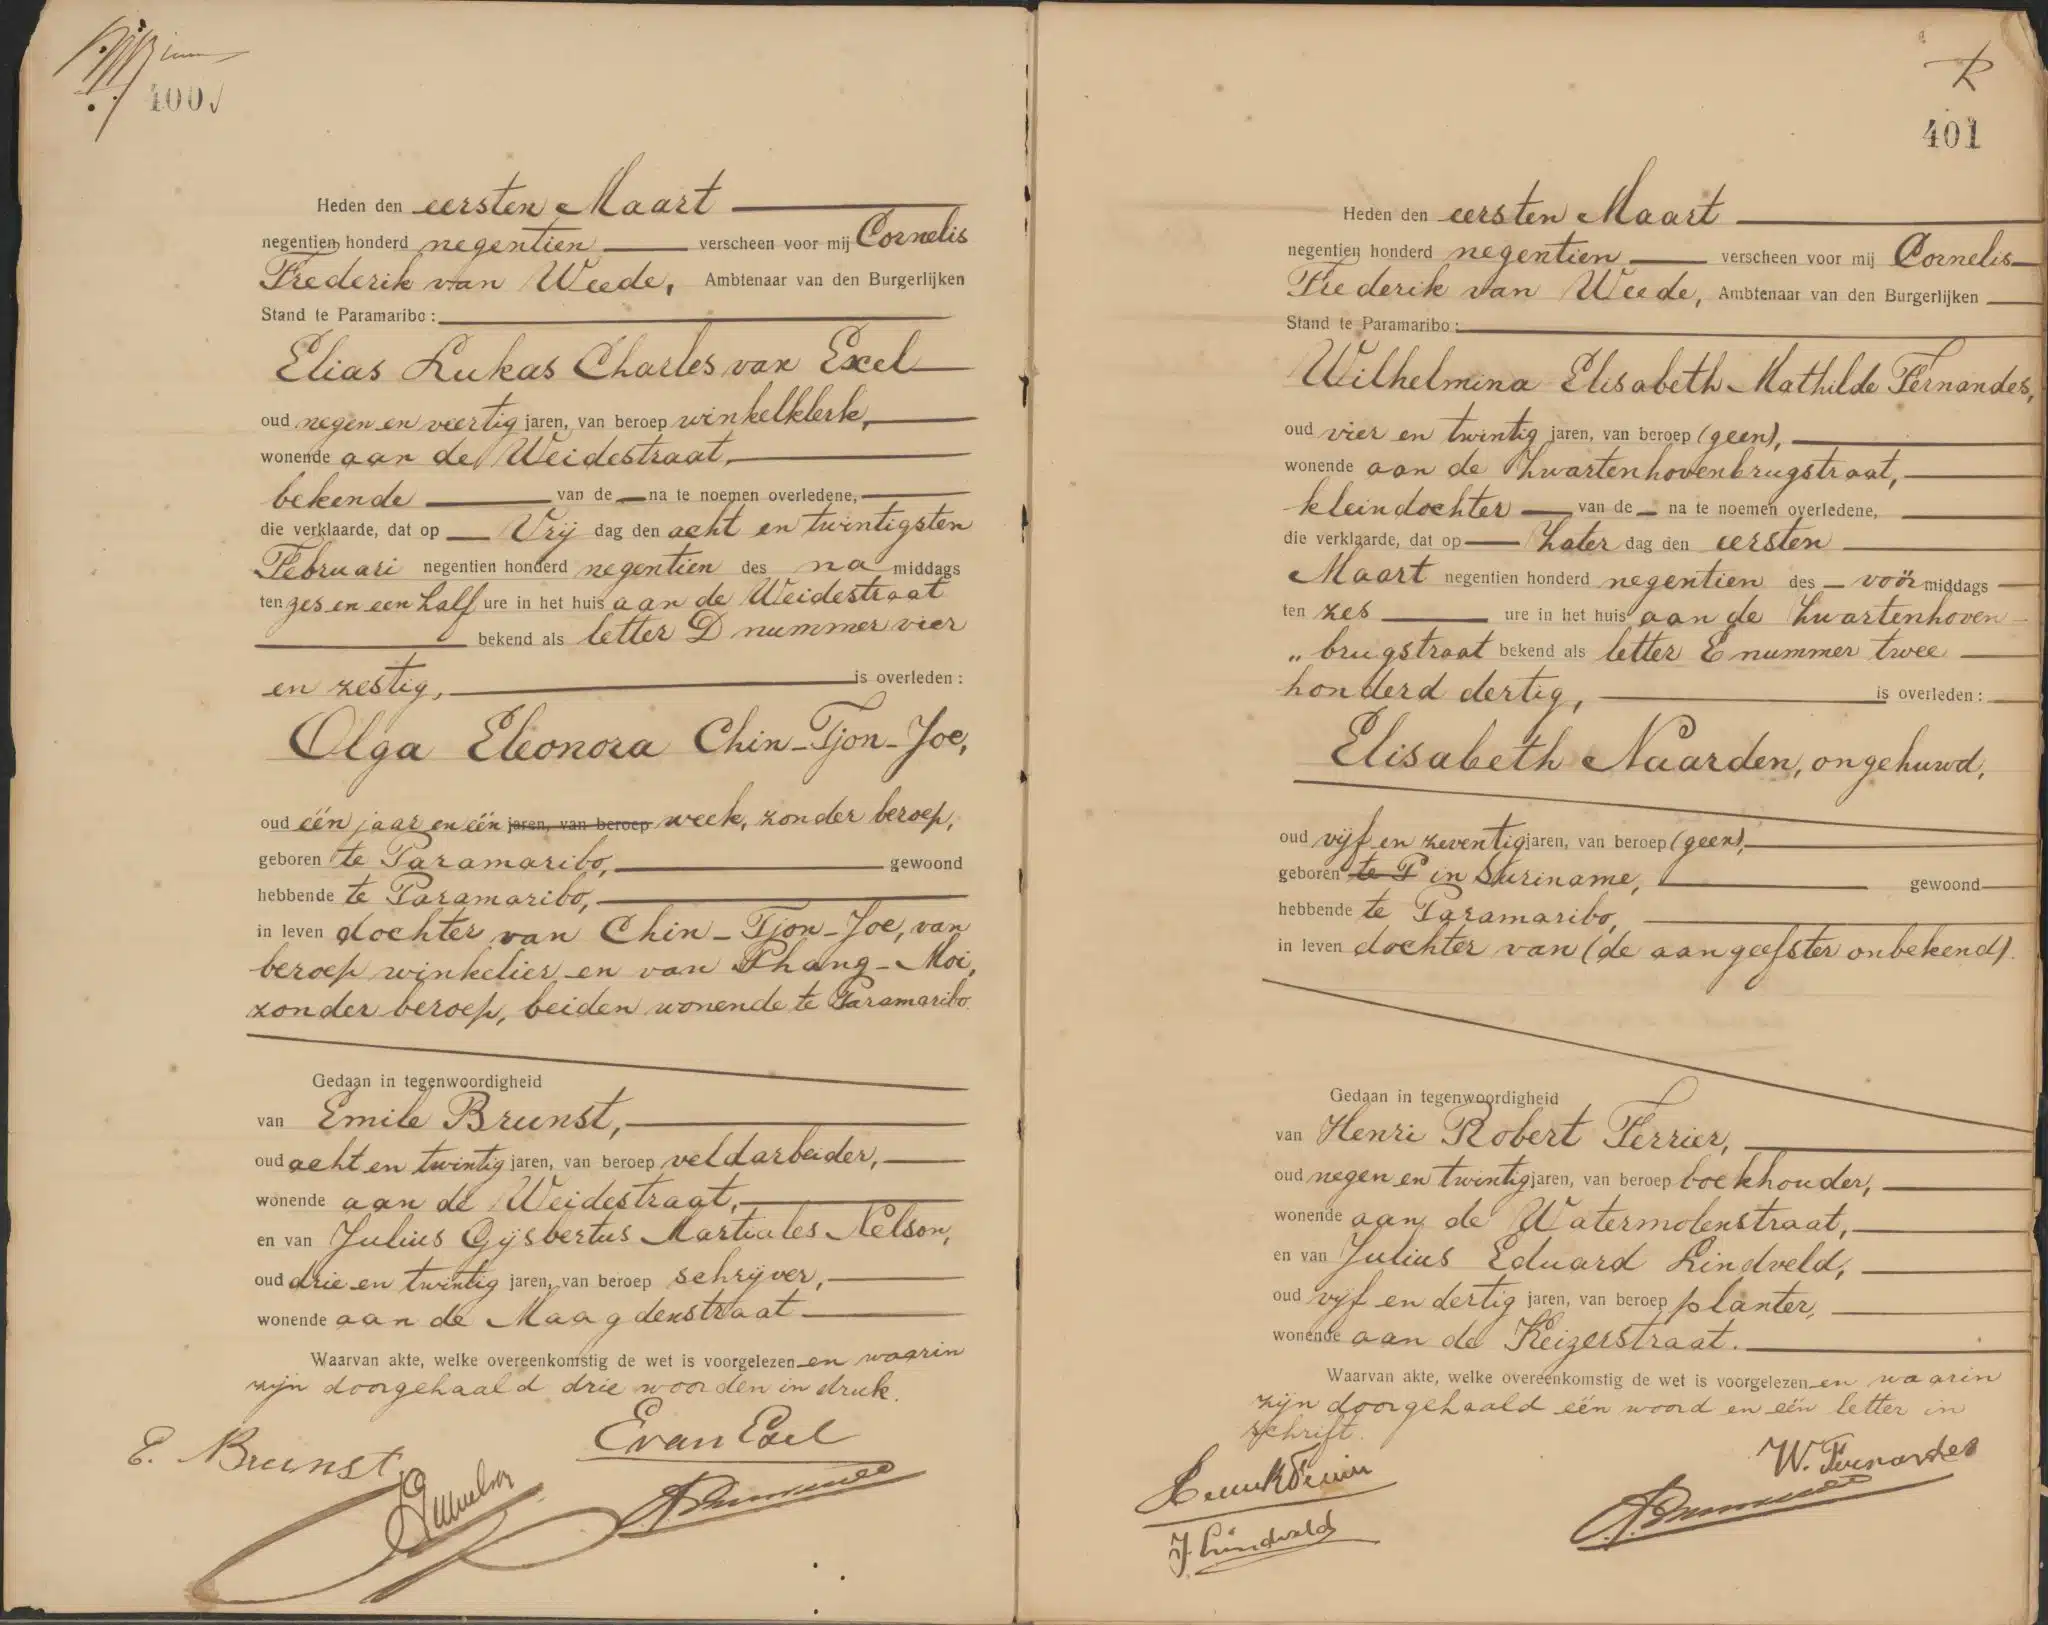 400
Heden den eersten Maart
negentien honderd negentien verscheen voor mij Cornelis
Frederik van Weede, Ambtenaar van den Burgerlijken
Stand te Paramaribo:
Elias Lukas Charles van Exel
oud negen en veertig jaren, van beroep winkelklerk,
wonende aan de Weidestraat,
bekende van de na te noemen overledene,
die verklaarde, dat op Vrij dag den acht en twintigsten
Februari negentien honderd negentien des na middags
ten zes en een half ure in het huis aan de Weidestraat
bekend als letter D nummer vier
en zestig, is overleden:
Olga Eleonora Chin-Tjon-Joe,
oud één jaar en één jaren, van beroep week, zonder beroep,
geboren te Paramaribo, gewoond
hebbende te Paramaribo,
in leven dochter van Chin-Tjon-Joe, van
beroep winkelier en van Phang-Moi,
zonder beroep, beiden wonende te Paramaribo.
Gedaan in tegenwoordigheid
van Emile Brunst,
oud acht en twintig jaren, van beroep veldarbeider,
wonende aan de Weidestraat,
en van Julius Gijsbertus Martiales Nelson,
oud drie en twintig jaren, van beroep schrijver,
wonende aan de Maagdenstraat
Waarvan akte, welke overeenkomstig de wet is voorgelezen en waarin
zijn doorgehaald drie woorden in druk.
E van Exel
E. Brunst
R
401
Heden den eersten Maart
negentien honderd negentien verscheen voor mij Cornelis
Frederik van Weede, Ambtenaar van den Burgerlijken
Stand te Paramaribo:
Wilhelmina Elisabeth Mathilde Fernandes,
oud vier en twintig jaren, van beroep (geen),
wonende aan de Zwartenhovenbrugstraat,
kleindochter van de na te noemen overledene,
die verklaarde, dat op Zater dag den eersten
Maart negentien honderd negentien des voör middags
ten zes ure in het huis aan de Zwartenhoven
„ brugstraat bekend als letter E nummer twee
honderd dertig, is overleden:
Elisabeth Naarden, ongehuwd,
oud vijf en zeventig jaren, van beroep (geen),
geboren te P in Suriname, gewoond
hebbende te Paramaribo,
in leven dochter van (de aangeefster onbekend).
Gedaan in tegenwoordigheid
van Henri Robert Ferrier,
oud negen en twintig jaren, van beroep boekhouder,
wonende aan de Watermolenstraat,
en van Julius Eduard Lindveld,
oud vijf en dertig jaren, van beroep planter,
wonende aan de Keizerstraat.
Waarvan akte, welke overeenkomstig de wet is voorgelezen en waarin
zijn doorgehaald één woord en één letter in
schrift.
W. Fernandes
J Lindveld